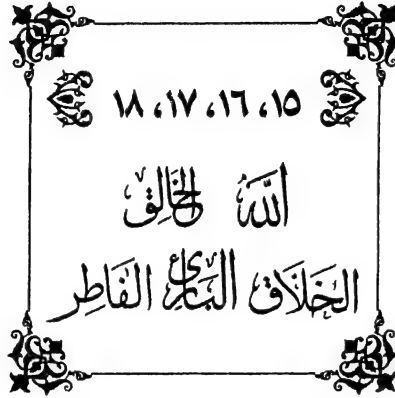 ١٥، ١٦، ١٧، ١٨
اللَّهُ الخَالِق
الخَلَاق البَارِئ الفَاطِر